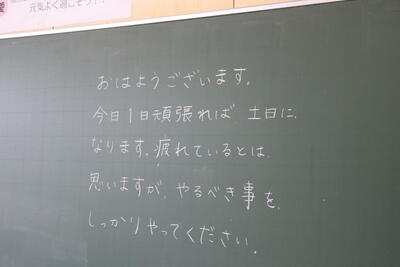 元気よく過ごそう！！
おはようございます。
今日1日頑張れば、土日に、
なります。疲れているとは、
思いますが、やるべき事を、
しっかりやってください。